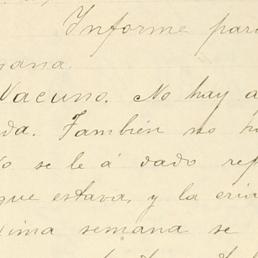 Informe para
mana.
Vacuno. No hay a
da. También no h
o se le á dado rep
que estava, y la cria
xima semana se